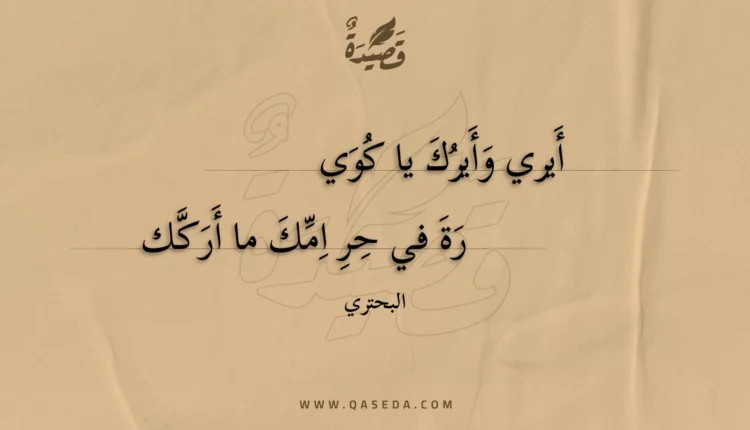 قَصِيدَةٌ
أَيري وَأَيرُكَ يا كُوَي
رَةَ في حِرِ اِمِّكَ ما أَرَكَّك
البحتري
WWW.QASEDA.COM